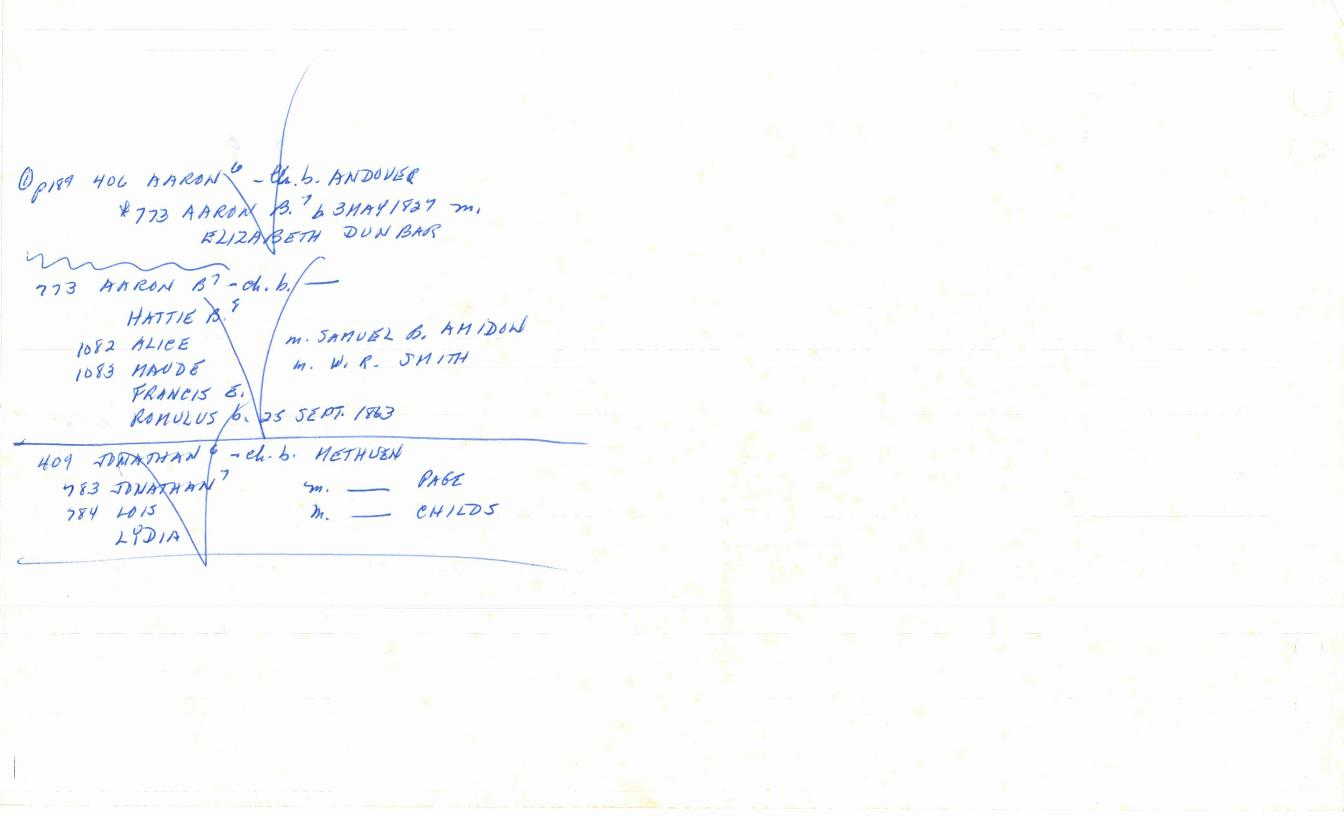 ① p189 406 AARON⁶ - ch. b. ANDOVER
*773 AARON B.⁷ b 3 MAY 1827 m.
ELIZABETH DUNBAR
773 AARON B⁷ - ch. b. —
HATTIE B.⁸
1082 ALICE m. SAMUEL B. AMIDON
1083 MAUDE m. W. R. SMITH
FRANCIS E.
ROMULUS b. 25 SEPT. 1863
409 JONATHAN⁶ - ch. b. METHUEN
783 JONATHAN⁷ m. — PAGE
784 LOIS m. — CHILDS
LYDIA